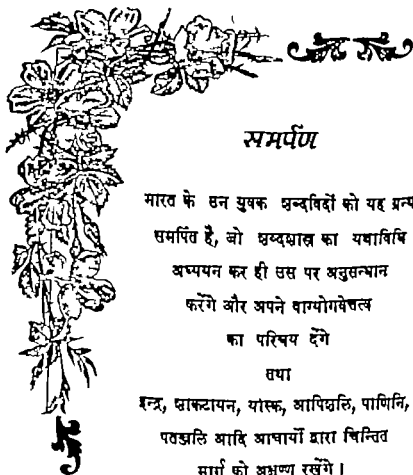 समर्पण
भारत के उन युवक शब्दविदों को यह ग्रन्थ
समर्पित है, जो शब्दशास्त्र का यथाविधि
अध्ययन कर ही उस पर अनुसन्धान
करेंगे और अपने वाग्योगवेत्तृत्व
का परिचय देंगे
तथा
इन्द्र, शाकटायन, यास्क, आपिशलि, पाणिनि,
पतञ्जलि आदि आचार्यों द्वारा चिन्तित
मार्ग को अक्षुण्ण रखेंगे।